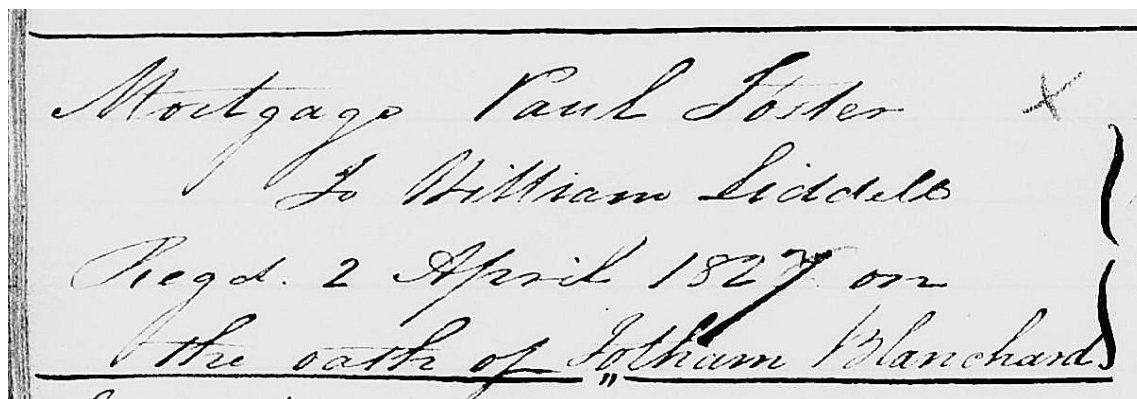 Mortgage Paul Foster
To William Liddell
Regd. 2 April 1827 on
the oath of Jotham Blanchard